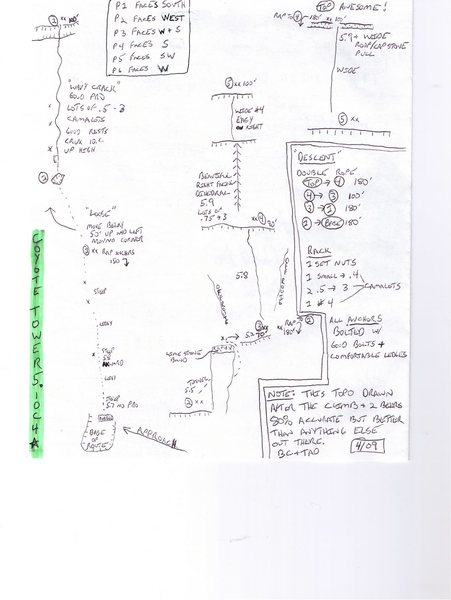 P1 FACES SOUTH
P2 FACES WEST
P3 FACES W + S
P4 FACES S
P5 FACES SW
P6 FACES W
2 xx 100'
"WAVY CRACK"
GOOD PRO
LOTS OF .5 - 3
CAMALOTS
GOOD RESTS
CRUX 10.C
UP HIGH
"LOOSE"
MOVE BELAY
50' UP AND LEFT
AROUND CORNER
xx RAP ANCHORS
150'
STEP
LEDGY
STEP
5.8
AWKWARD
LEDGY
STEP
5.7 NO PRO
BASE OF
ROUTE
APPROACH
COYOTE TOWER 5.10C 4 ★
5 xx 100'
WIDE #4
EASY
ON RIGHT
BEAUTIFUL
RIGHT FACING
DIHEDRAL
5.9
LOTS OF
.75 → 3
4
5.8
CHOSSY
3 xx
5.7
RAP
180'
2
LIMESTONE
BAND
TUNNEL
5.5
2 xx
TOP AWESOME!
RAP TO 4 180'
xx 100'
5.9+ WIDE
ROOF/CAPSTONE
PULL
WIDE
5 xx
"DESCENT"
DOUBLE ROPE
TOP → 4 180'
4 → 3 100'
3 → 2 180'
2 → BASE 180'
RACK
1 SET NUTS
1 SMALL → .4
2 .5 → 3 CAMALOTS
1 #4
ALL ANCHORS
BOLTED W/
GOOD BOLTS +
COMFORTABLE LEDGES
NOTE: THIS TOPO DRAWN
AFTER THE CLIMB + 2 BEERS
80% ACCURATE BUT BETTER
THAN ANYTHING ELSE
OUT THERE.
BC + TAD
4/09